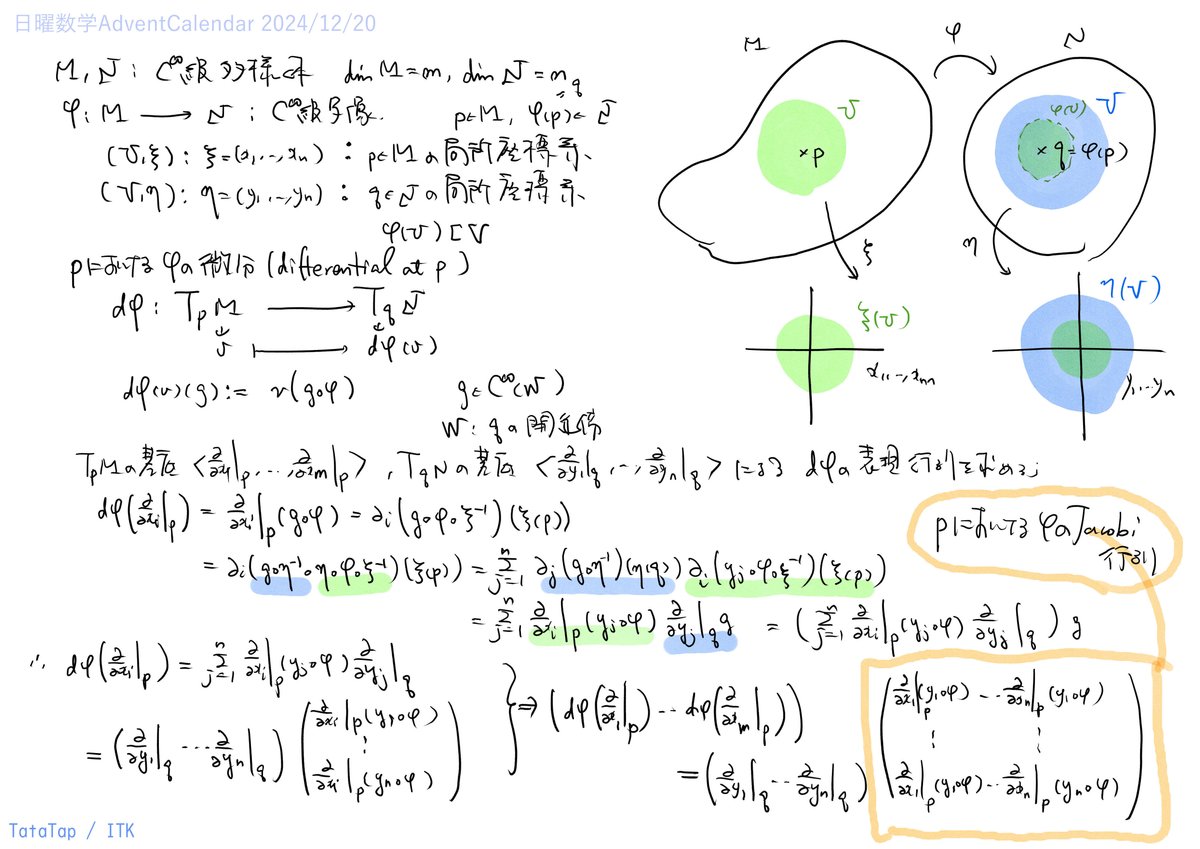 日曜数学AdventCalendar 2024/12/20
M, N : C^∞級多様体 dim M = m, dim N = n
φ : M ⟶ N : C^∞級写像. p∈M, φ(p)∈N
q
(U, ξ) : ξ=(x₁,…,xₙ) : p∈M の局所座標系、
(V, η) : η=(y₁,…,yₙ) : q∈N の局所座標系、
φ(U)⊂V
pにおけるφの微分(differential at p)
dφ : TpM ⟶ TqN
v ⟼ dφ(v)
dφ(v)(g) := v(g∘φ) g∈C^∞(W)
W : qの開近傍
TpMの基底 <∂/∂x₁|p,…,∂/∂xm|p>, TqNの基底 <∂/∂y₁|q,…,∂/∂yn|q> による dφの表現行列を求める;
dφ(∂/∂xi|p) = ∂/∂xi|p(g∘φ) = ∂i(g∘φ∘ξ⁻¹)(ξ(p))
= ∂i(g∘η⁻¹∘η∘φ∘ξ⁻¹)(ξ(p)) = Σ_{j=1}^{n} ∂j(g∘η⁻¹)(η(q)) ∂i(yj∘φ∘ξ⁻¹)(ξ(p))
= Σ_{j=1}^{n} ∂/∂xi|p(yj∘φ) ∂/∂yj|q g = (Σ_{j=1}^{n} ∂/∂xi|p(yj∘φ) ∂/∂yj|q) g
∴ dφ(∂/∂xi|p) = Σ_{j=1}^{n} ∂/∂xi|p(yj∘φ) ∂/∂yj|q
= (∂/∂y₁|q ⋯ ∂/∂yn|q) (∂/∂xi|p(y₁∘φ) ⋮ ∂/∂xi|p(yn∘φ))
} ⇒ (dφ(∂/∂x₁|p) ⋯ dφ(∂/∂xm|p))
= (∂/∂y₁|q ⋯ ∂/∂yn|q)
(∂/∂x₁|p(y₁∘φ) ⋯ ∂/∂xn|p(y₁∘φ)
⋮ ⋮
∂/∂x₁|p(y₁∘φ) ⋯ ∂/∂xn|p(yn∘φ))
pにおけるφのJacobi
行列
M
φ
N
U
×p
φ(U)
V
×q=φ(p)
ξ
η
ξ(U)
x₁,…,xm
η(V)
y₁,…yn
TataTap / ITK